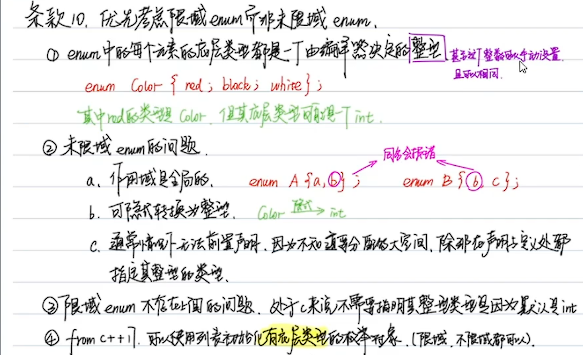 条款10. 优先考虑限域enum而非未限域enum.
① enum中的每个元素的底层类型都是一个由编译器决定的整型. 甚至这个整数可以手动设置,
且可以相同.
enum Color { red; black; white};
其中red的类型是 Color. 但其底层类型可能是一个int.
② 未限域enum的问题. 同名会报错
a. 作用域是全局的. enum A {a, b}; enum B { b, c };
b. 可隐式转换为整型. Color 隐式→ int
c. 通常情况下无法前置声明. 因为不知道要分配的大空间. 除非在声明与定义处都
指定其整型的类型.
③ 限域enum不存在上面的问题. 对于c来说不需要指明其整型类型是因为默认是int
④ from c++17. 可以使用列表初始化有底层类型的枚举对象. (限域, 不限域都可以).